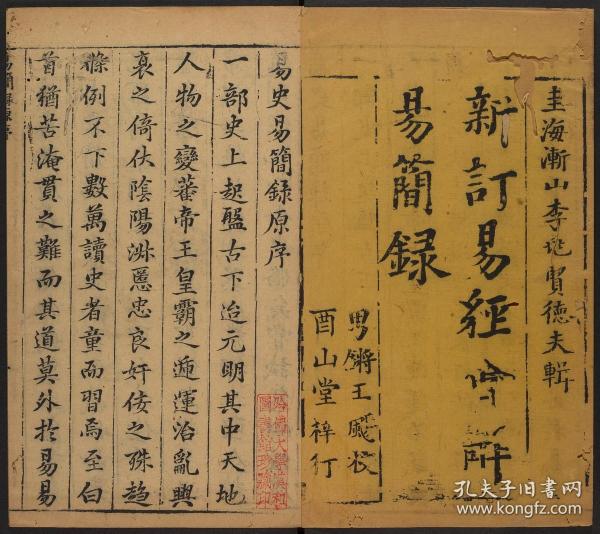 圭海漸山李兆賢德夫輯
新訂易經
易簡錄
男鏘王颺校
酉山堂梓行
易史易簡錄原序
一部史上起盤古下迨元明其中天地
人物之變蕃帝王皇霸之遞運治亂興
衰之倚伏陰陽淑慝忠良奸佞之殊趋
條例不下數萬讀史者童而習焉至白
首猶苦淹貫之難而其道莫外於易易
哈佛大學漢和
圖書館珍藏印
孔夫子旧书网
www.kongfz.com